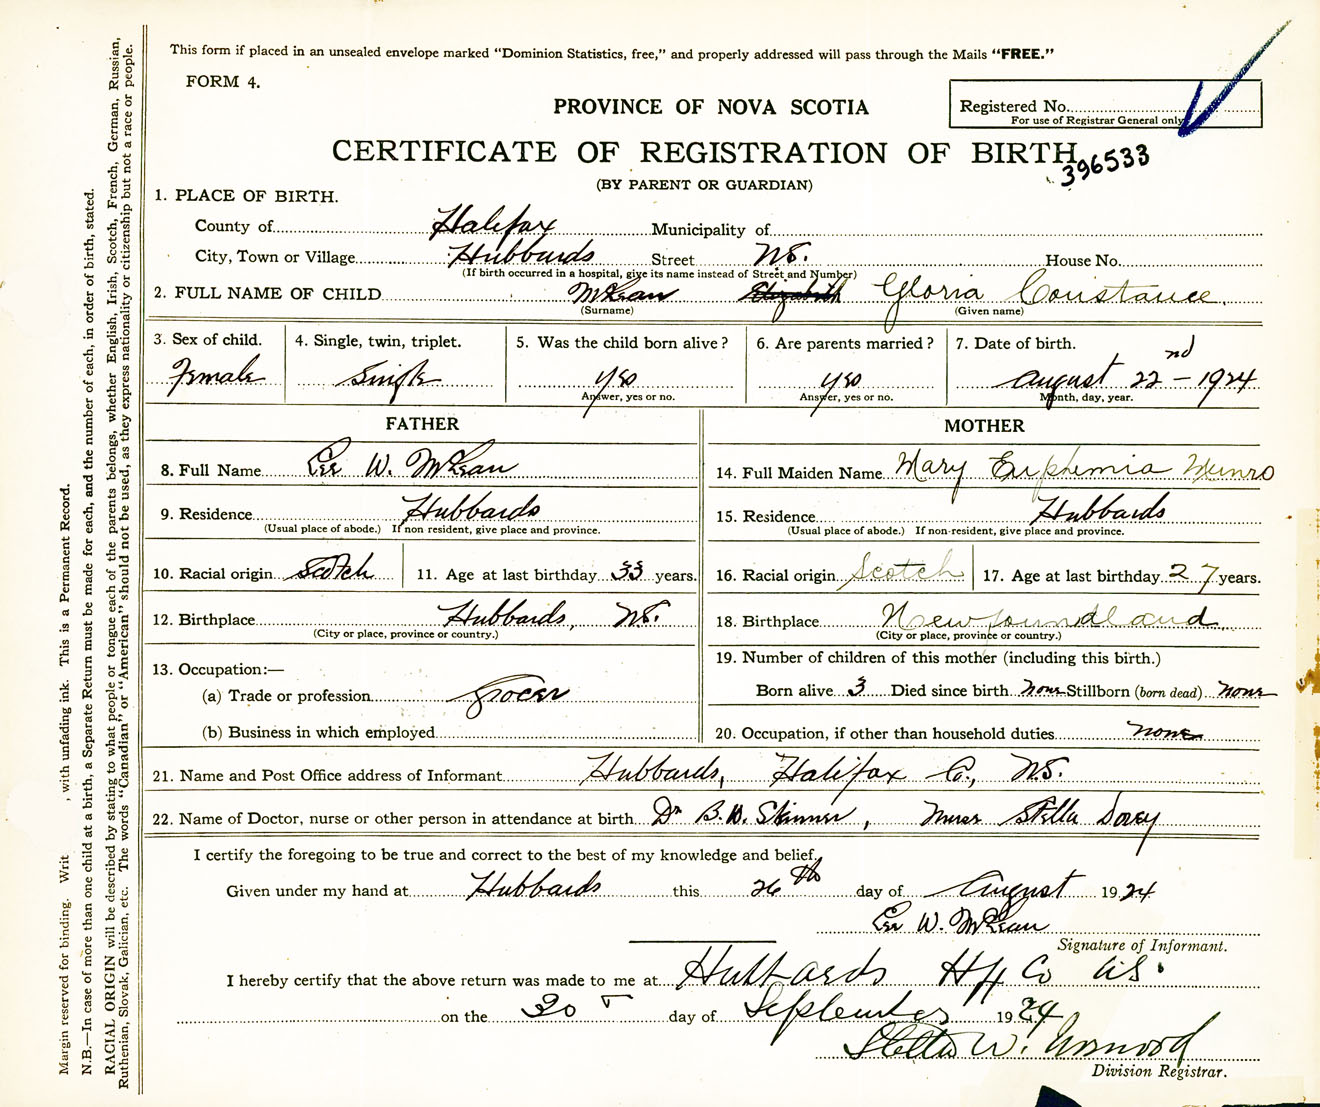 This form if placed in an unsealed envelope marked "Dominion Statistics, free," and properly addressed will pass through the Mails "FREE."
FORM 4.
PROVINCE OF NOVA SCOTIA
Registered No.
For use of Registrar General only
CERTIFICATE OF REGISTRATION OF BIRTH
396533
(BY PARENT OR GUARDIAN)
1. PLACE OF BIRTH.
County of Halifax Municipality of
City, Town or Village Hubbards Street N.S. House No.
(If birth occurred in a hospital, give its name instead of Street and Number)
2. FULL NAME OF CHILD McLean Elizabeth Gloria Constance.
(Surname) (Given name)
3. Sex of child. 4. Single, twin, triplet. 5. Was the child born alive? 6. Are parents married? 7. Date of birth.
Female Single yes yes August 22nd - 1924
Answer, yes or no. Answer, yes or no. Month, day, year.
FATHER
8. Full Name Lee W. McLean
9. Residence Hubbards
(Usual place of abode.) If non resident, give place and province.
10. Racial origin Scotch 11. Age at last birthday 33 years.
12. Birthplace Hubbards, N.S.
(City or place, province or country.)
13. Occupation:—
(a) Trade or profession grocer
(b) Business in which employed
MOTHER
14. Full Maiden Name Mary Euphemia Munro
15. Residence Hubbards
(Usual place of abode.) If non-resident, give place and province.
16. Racial origin Scotch 17. Age at last birthday 27 years.
18. Birthplace Newfoundland
(City or place, province or country.)
19. Number of children of this mother (including this birth.)
Born alive 3 Died since birth none Stillborn (born dead) none
20. Occupation, if other than household duties none
21. Name and Post Office address of Informant Hubbards, Halifax Co., N.S.
22. Name of Doctor, nurse or other person in attendance at birth Dr B.W. Skinner, Nurse Stella Dorey
I certify the foregoing to be true and correct to the best of my knowledge and belief.
Given under my hand at Hubbards this 26th day of August 1924
Lee W. McLean
Signature of Informant.
I hereby certify that the above return was made to me at Hubbards Hfx Co N.S.
on the 20 day of September 1924
Stella W. Norwood
Division Registrar.
Margin reserved for binding. Writ , with unfading ink. This is a Permanent Record.
N.B.—In case of more than one child at a birth, a Separate Return must be made for each, and the number of each, in order of birth, stated.
RACIAL ORIGIN will be described by stating to what people or tongue each of the parents belongs, whether English, Irish, Scotch, French, German, Russian,
Ruthenian, Slovak, Galician, etc. The words "Canadian" or "American" should not be used, as they express nationality or citizenship but not a race or people.